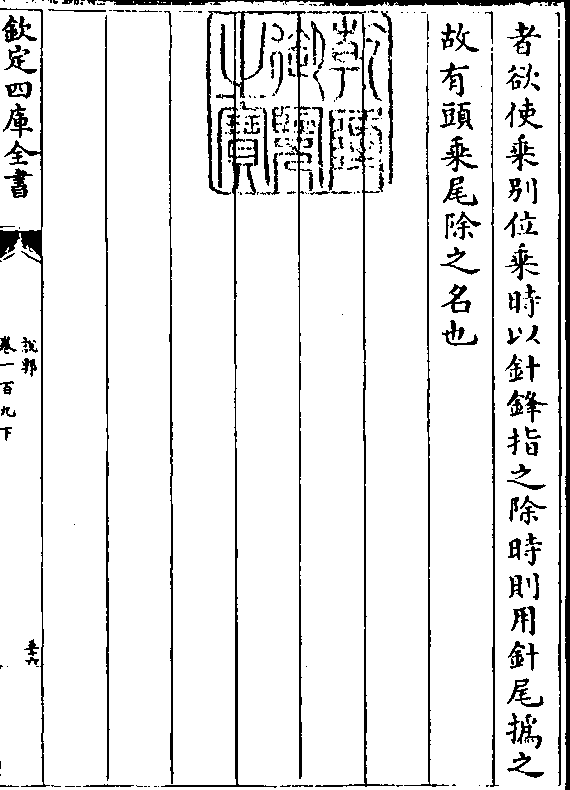 者欲使乘別位乘時以針鋒指之除時則用針尾撝之
故有頭乘尾除之名也
乾隆御覽之寶
欽定四庫全書
說郛
卷一百九下